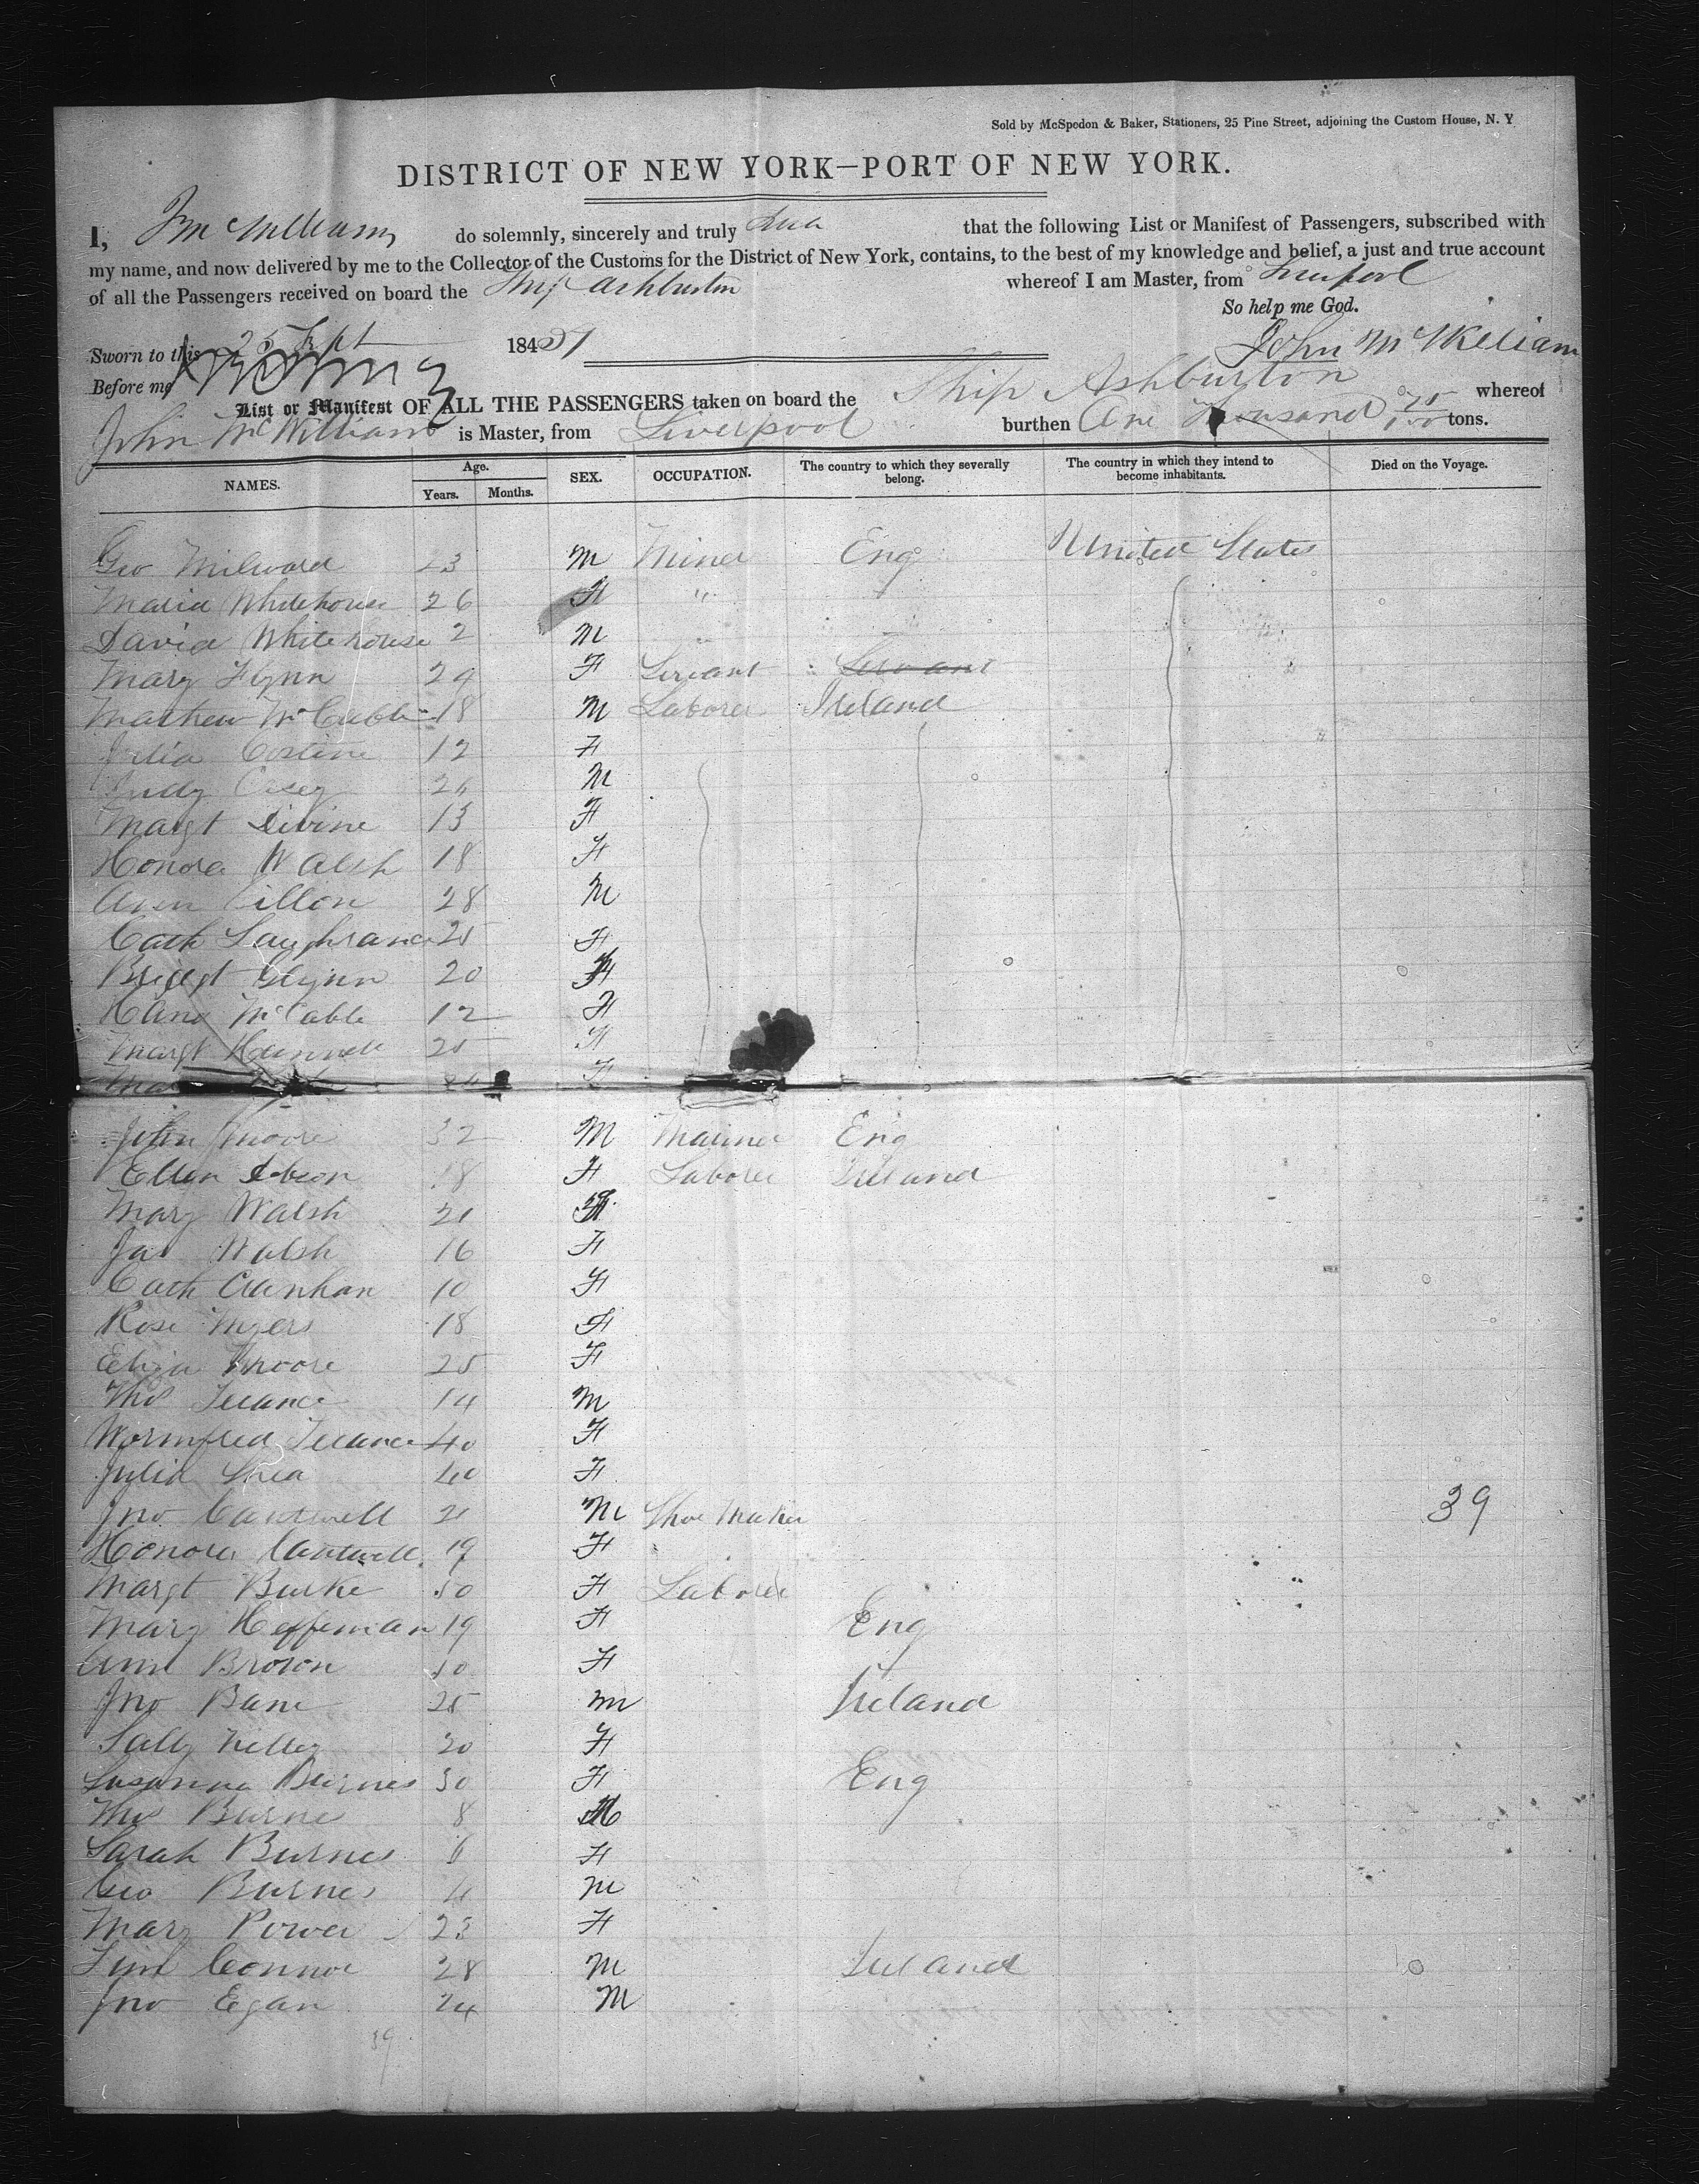 Sold by McSpedon & Baker, Stationers, 25 Pine Street, adjoining the Custom House, N. Y
DISTRICT OF NEW YORK—PORT OF NEW YORK.
I, do solemnly, sincerely and truly that the following List or Manifest of Passengers, subscribed with
my name, and now delivered by me to the Collector of the Customs for the District of New York, contains, to the best of my knowledge and belief, a just and true account
of all the Passengers received on board the Ship Ashburton whereof I am Master, from Liverpool
So help me God.
Sworn to this 25 Sept 184
Before me
List or Manifest OF ALL THE PASSENGERS taken on board the Ship Ashburton whereof
John McWilliams is Master, from Liverpool burthen One Thousand 25/100 tons.
NAMES. Age. Years. Months. SEX. OCCUPATION. The country to which they severally belong. The country in which they intend to become inhabitants. Died on the Voyage.
Geo Milward 23 M Miner Eng United States
Maria Whitehouse 26 F "
David Whitehouse 2 M "
Mary Flynn 24 F Servant Servant
Mathew McCabe 18 M Laborer Ireland
Julia Costine 12 F
Casey M
Margt Divine 13 F
Honora Walsh 18 F
28 M
Cath 25 F
Bridgt Glynn 20 F
McCabe 12 F
Margt 25 F
F
John Moore 32 M Mariner Eng
Ellen 18 F Laborer Ireland
Mary Walsh 21 F
Jas Walsh 16 F
Cath 10 F
Rose Myers 18 F
Eliza Moore 25 F
Thos 14 M
40 F
Julia Shea 40 F
Jno Cantwell 21 M Shoe Maker 39
Honora Cantwell 19 F
Margt Burke 50 F Laborer
Mary Heffernan 19 F Eng
Ann Brown F
Jno Bane 25 M Ireland
Sally Kelley 20 F
Susanna Burnes 30 F Eng
Thos Burne 8 M
Sarah Burnes 6 F
Geo Burnes 4 M
Mary Power 23 F
Tim Connor 28 M Ireland
Jno Egan 24 M
39